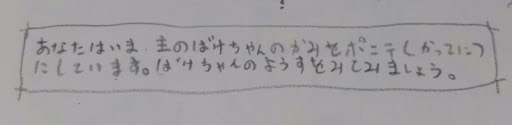 あなたはいま 主のばけちゃんのかみをポニテ(かってに)
にしています。ばけちゃんのようすをみてみましょう。